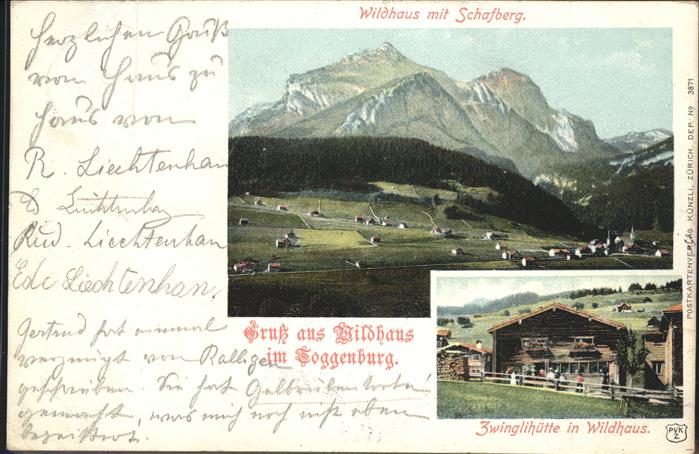 Wildhaus mit Schafberg.
Herzlichen Gruß
vom Haus zu
Haus von
R. Liechtenhan
Ed Liechtenhan
Rud. Liechtenhan
Ede Liechtenhan.
Gertrud hat einmal
vergnügt von Ralligen
geschrieben. Sie hat
gemacht, was mich noch nicht eben
begeistert.
Gruß aus Wildhaus
im Toggenburg.
Zwinglihütte in Wildhaus.
POSTKARTENVERLAG KÜNZLI, ZÜRICH. DEP. No 3871
PVK
Z